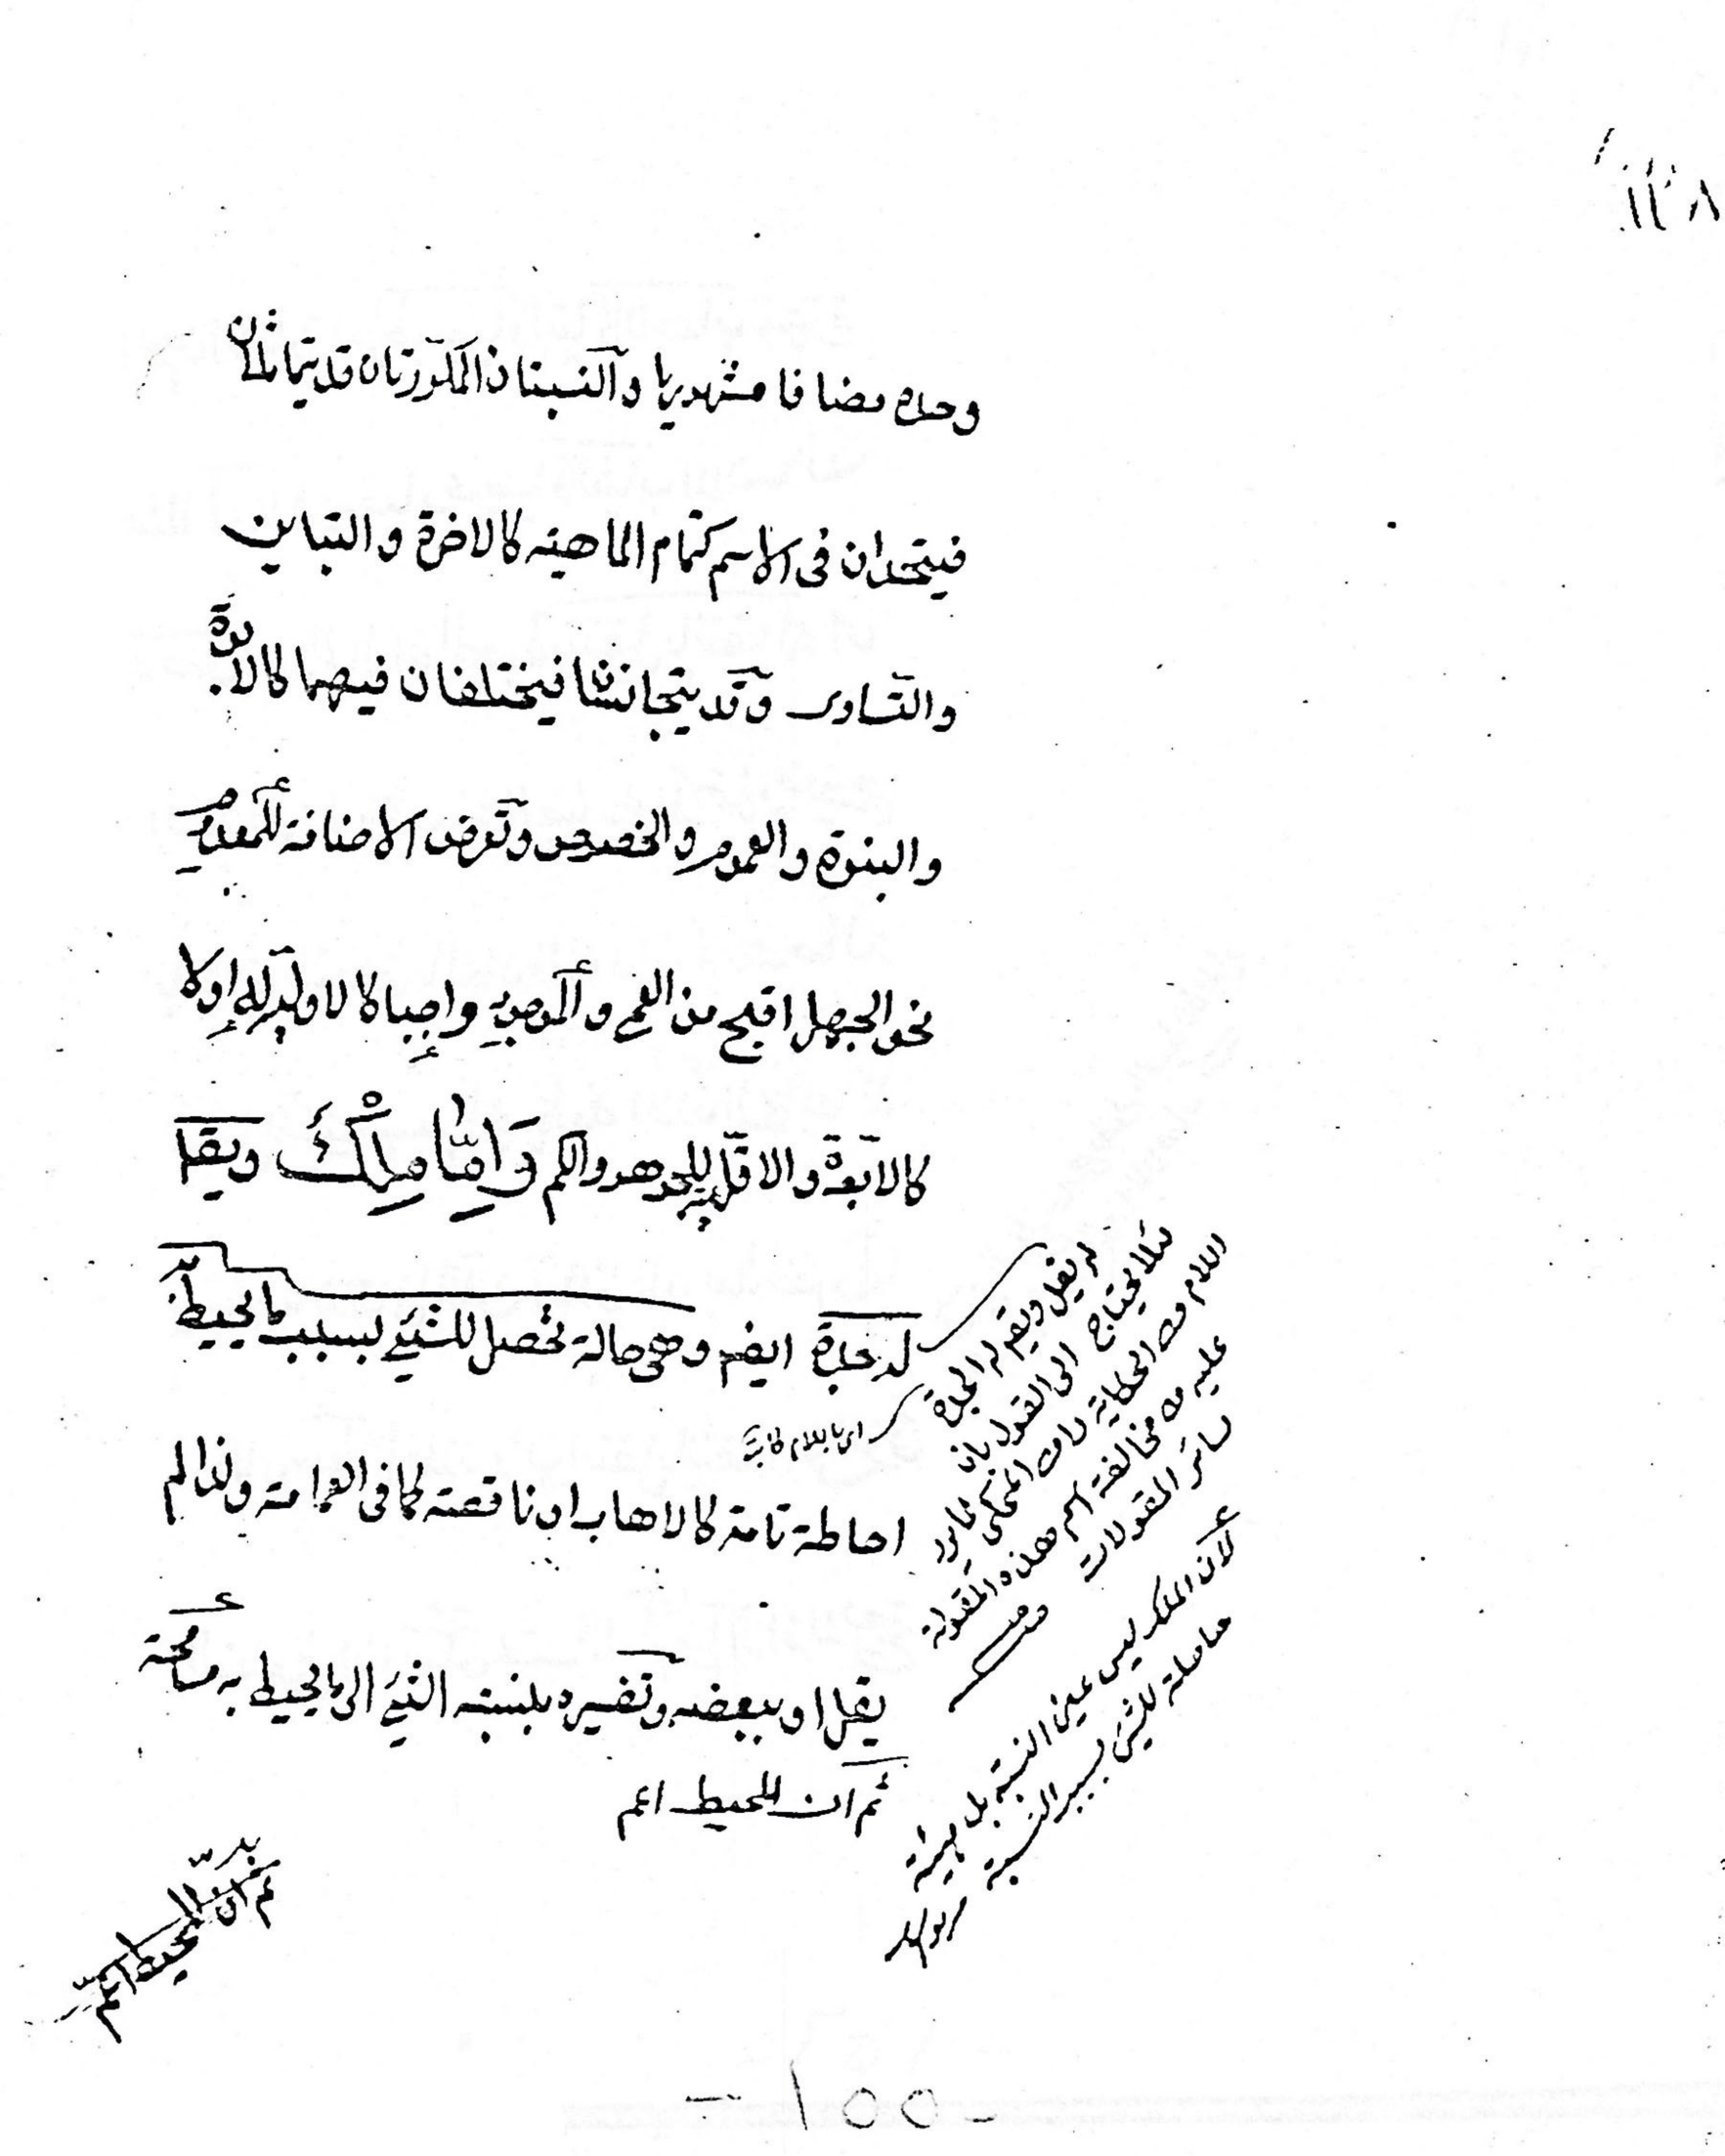 ١٢٨
وحده مضافا مشهوريا والنسبتان المكررتان قد يتماثلان
فيتحدان فى الاسم كتمام الماهية كالاخوة والتباين
والتساوى وقد يتجانسا فيختلفان فيهما كالابوة
والبنوة والعموم والخصوص وتعرض الاضافة للمعدوم
نحو الجهل اقبح من العمى والموجود واجبا كالاولية له او لا
كالابوة والاقلية للجوهر والكم وَاِمَّا مِلْكٌ ويقا
له جدة ايضا وهى حالة تحصل للشئ بسبب ما يحيط به
احاطة تامة كالاهاب او ناقصة كما فى العمامة ولذا لم
يقل او ببعضه وتفسيره بنسبة الشئ الى ما يحيط به مسامحة
ثم ان المحيط اعم
لم يقل ويقال له الجدة
لئلا يحتاج الى القول بان
اللام من الحكاية لا من المحكى
عليه من مخالفة اسم هذه المقولة
سائر المقولات
لان الملك ليس عين النسبة بل
حاصلة للشئ بسبب النسبة
ثم ان المحيط اعم
- ١٥٥ -